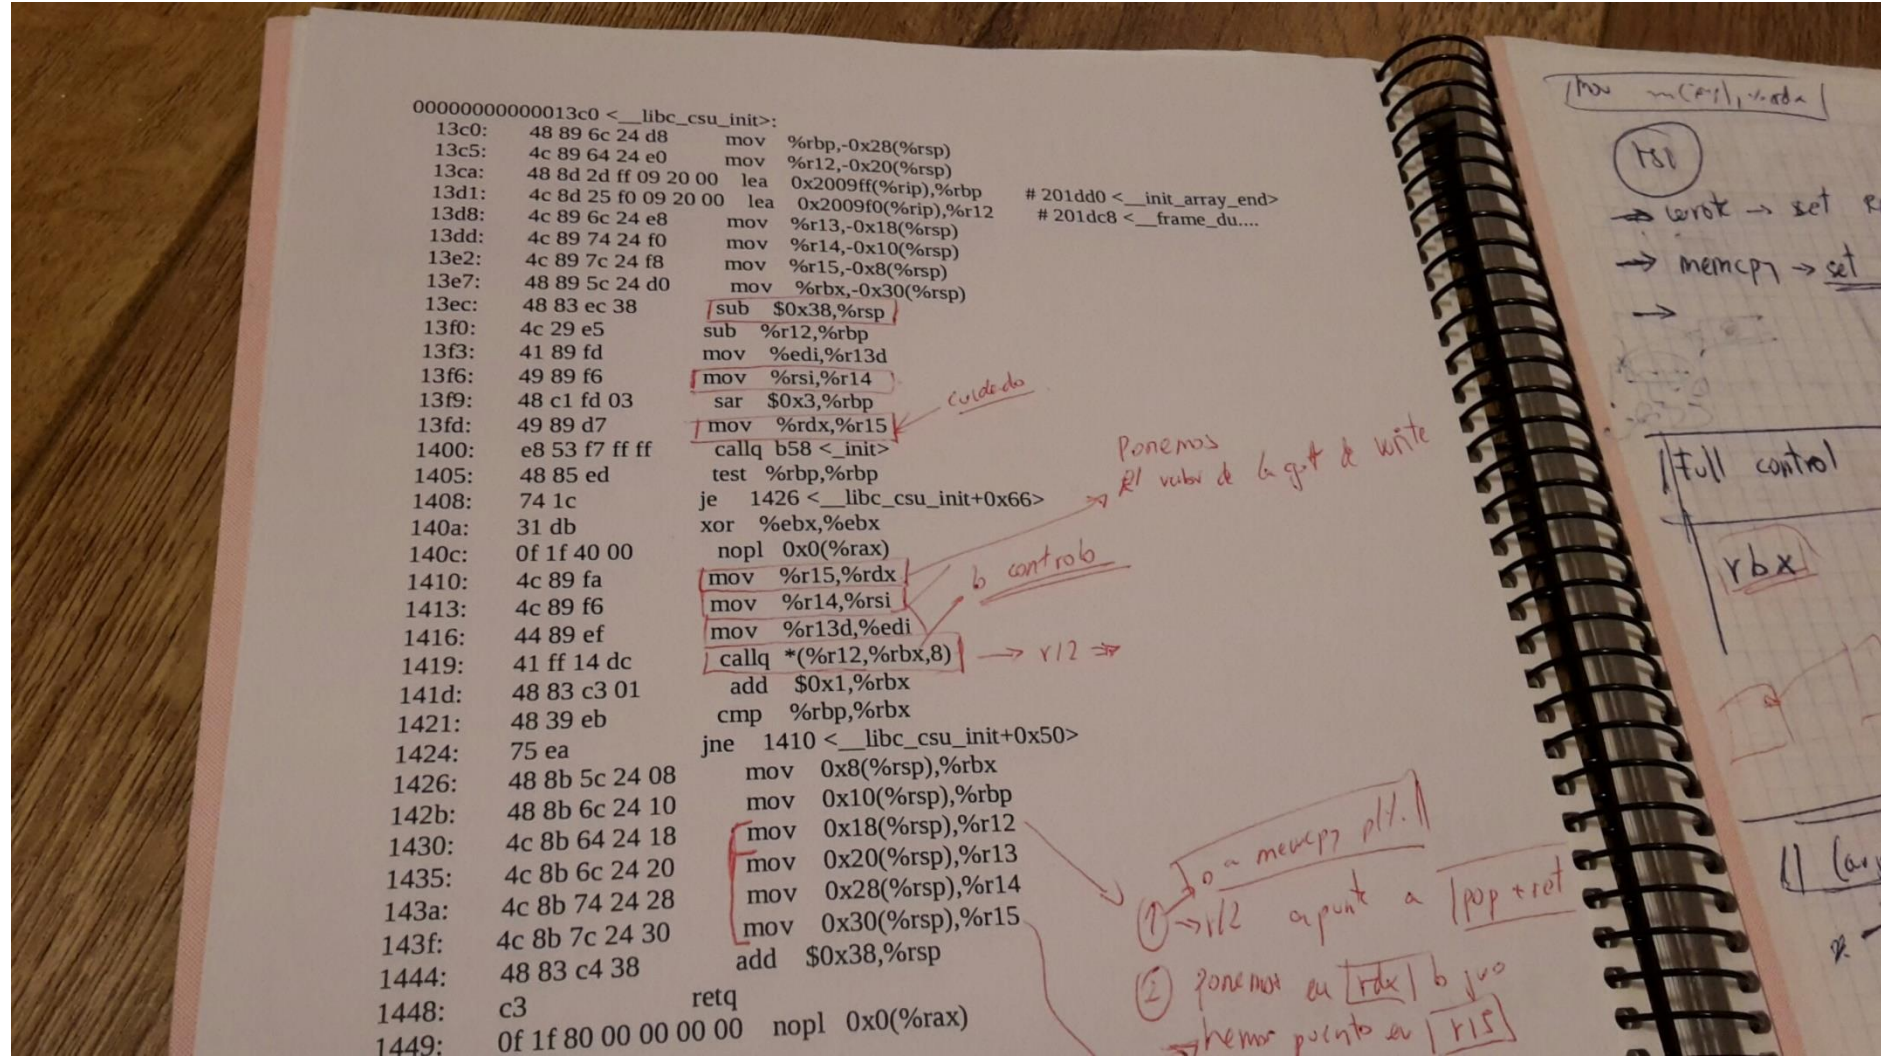 00000000000013c0 <__libc_csu_init>:
13c0: 48 89 6c 24 d8 mov %rbp,-0x28(%rsp)
13c5: 4c 89 64 24 e0 mov %r12,-0x20(%rsp)
13ca: 48 8d 2d ff 09 20 00 lea 0x2009ff(%rip),%rbp # 201dd0 <__init_array_end>
13d1: 4c 8d 25 f0 09 20 00 lea 0x2009f0(%rip),%r12 # 201dc8 <__frame_du....
13d8: 4c 89 6c 24 e8 mov %r13,-0x18(%rsp)
13dd: 4c 89 74 24 f0 mov %r14,-0x10(%rsp)
13e2: 4c 89 7c 24 f8 mov %r15,-0x8(%rsp)
13e7: 48 89 5c 24 d0 mov %rbx,-0x30(%rsp)
13ec: 48 83 ec 38 sub $0x38,%rsp
13f0: 4c 29 e5 sub %r12,%rbp
13f3: 41 89 fd mov %edi,%r13d
13f6: 49 89 f6 mov %rsi,%r14
13f9: 48 c1 fd 03 sar $0x3,%rbp
cuidado
13fd: 49 89 d7 mov %rdx,%r15
1400: e8 53 f7 ff ff callq b58 <_init>
1405: 48 85 ed test %rbp,%rbp
1408: 74 1c je 1426 <__libc_csu_init+0x66>
Ponemos
El valor de la got de write
140a: 31 db xor %ebx,%ebx
140c: 0f 1f 40 00 nopl 0x0(%rax)
1410: 4c 89 fa mov %r15,%rdx
lo controlo
1413: 4c 89 f6 mov %r14,%rsi
1416: 44 89 ef mov %r13d,%edi
1419: 41 ff 14 dc callq *(%r12,%rbx,8) → r12 ⇒
141d: 48 83 c3 01 add $0x1,%rbx
1421: 48 39 eb cmp %rbp,%rbx
1424: 75 ea jne 1410 <__libc_csu_init+0x50>
1426: 48 8b 5c 24 08 mov 0x8(%rsp),%rbx
142b: 48 8b 6c 24 10 mov 0x10(%rsp),%rbp
1430: 4c 8b 64 24 18 mov 0x18(%rsp),%r12
1435: 4c 8b 6c 24 20 mov 0x20(%rsp),%r13
143a: 4c 8b 74 24 28 mov 0x28(%rsp),%r14
143f: 4c 8b 7c 24 30 mov 0x30(%rsp),%r15
1444: 48 83 c4 38 add $0x38,%rsp
1448: c3 retq
1449: 0f 1f 80 00 00 00 00 nopl 0x0(%rax)
o a memcpy
1 → r12 apunta a pop + ret
2 Ponemos en rdx lo que
→ hemos puesto en r15
mov
rsi
→ wrote → set
→ memcpy → set
→
Full control
rbx